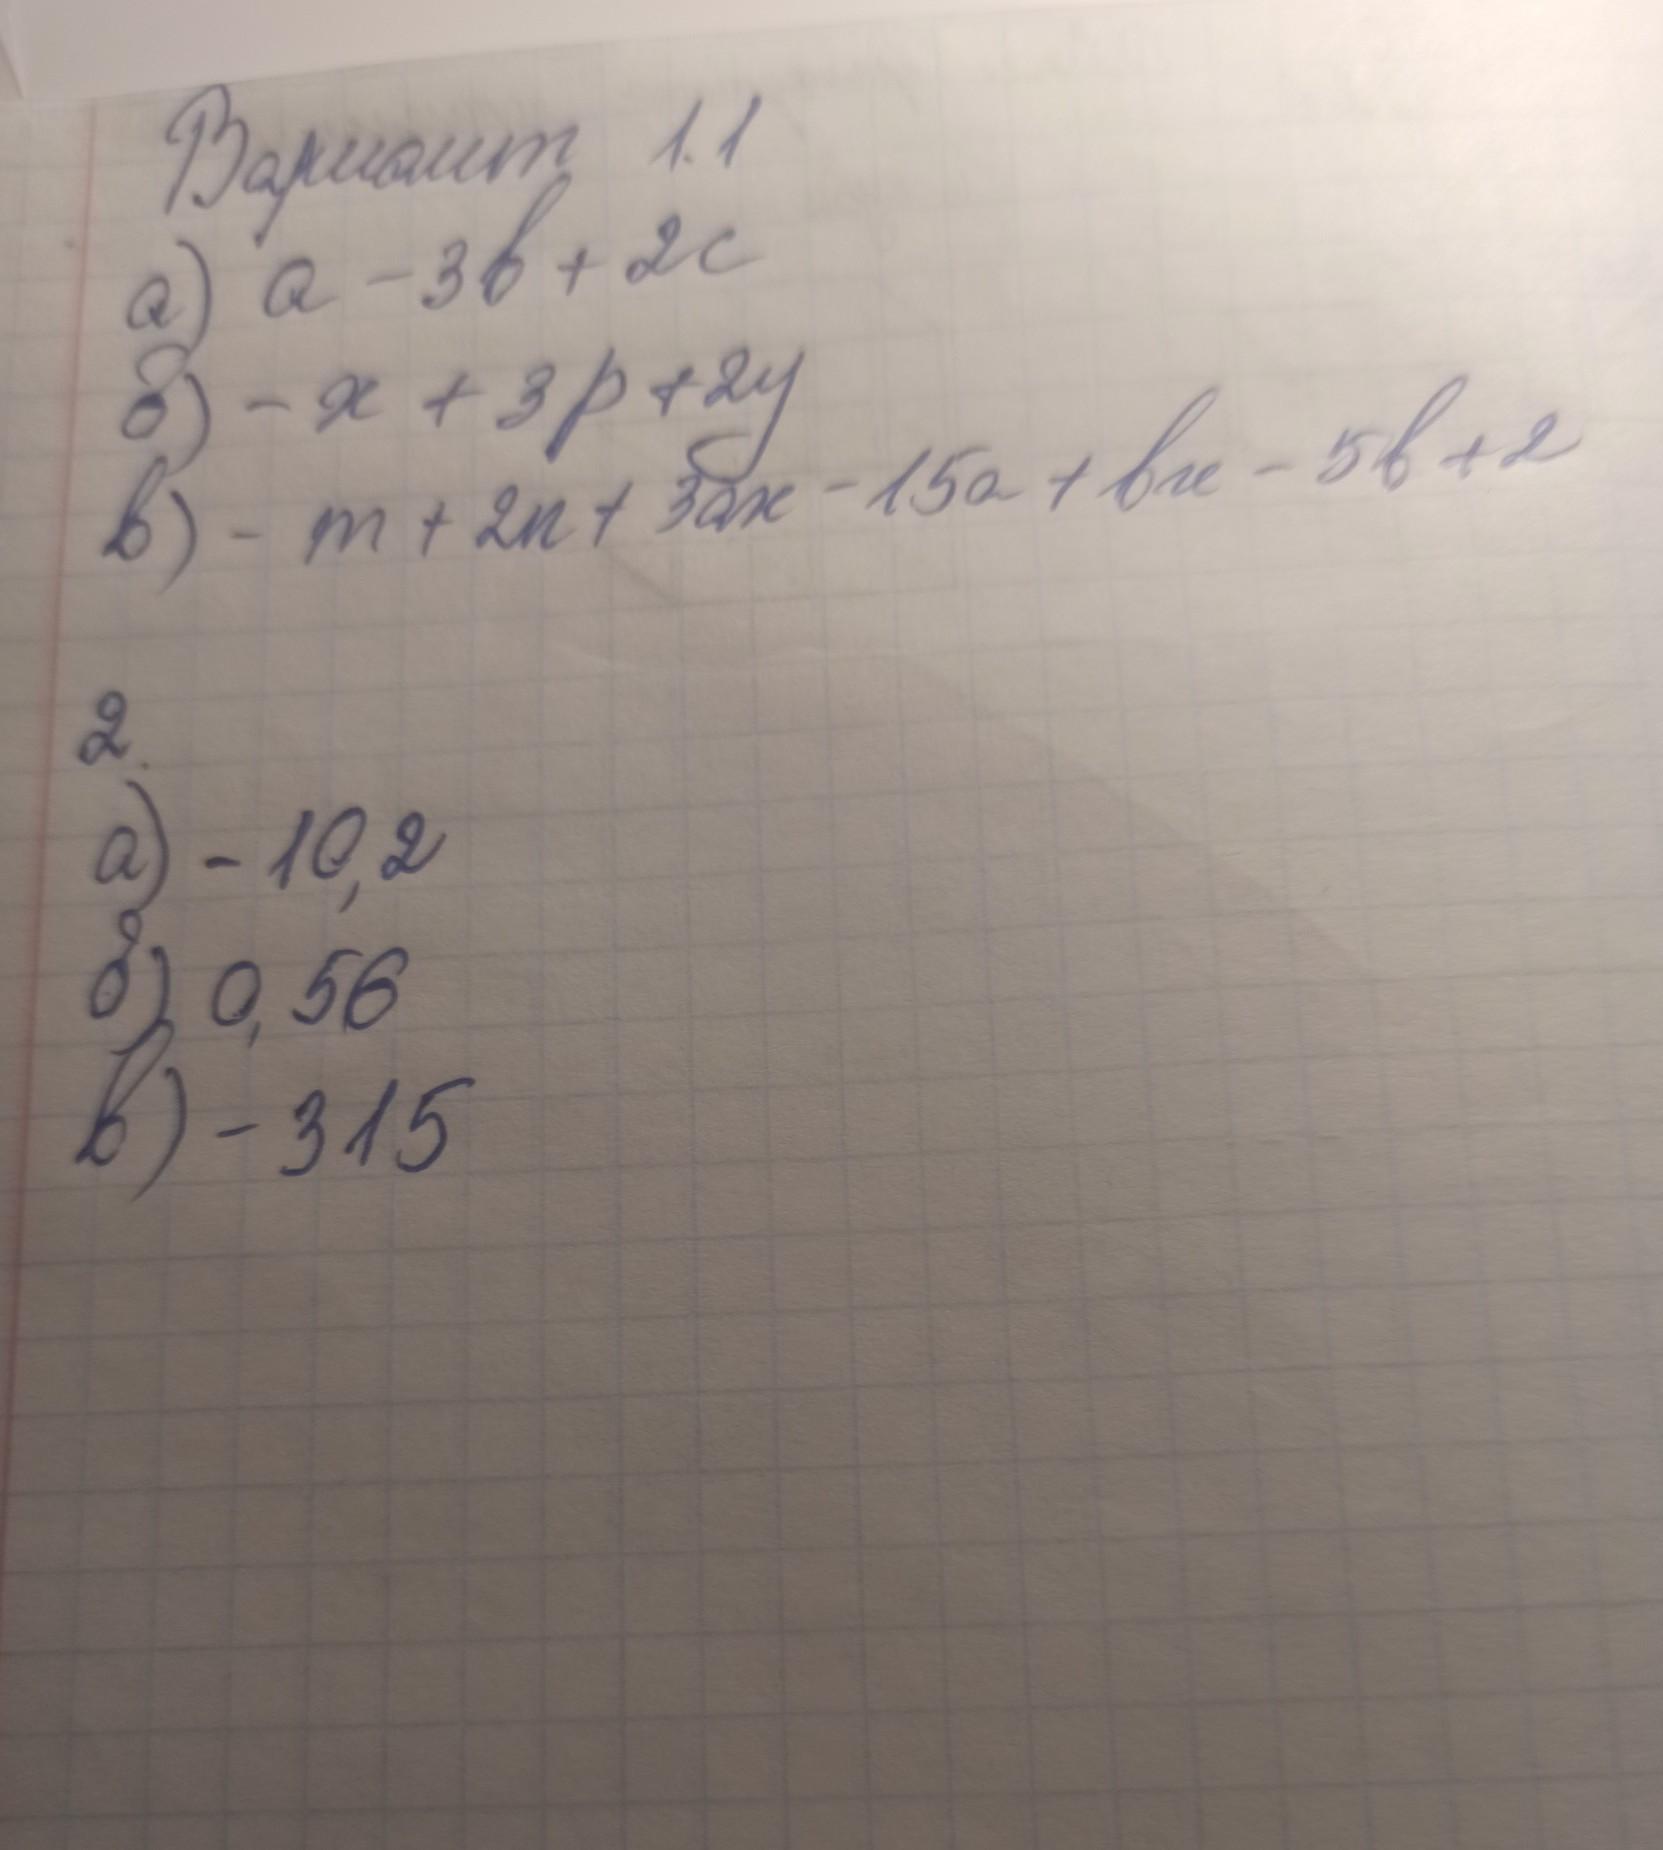 Вариант 1.1
а) a - 3b + 2c
б) - x + 3p + 2y
в) - m + 2n + 3ax - 15a + bx - 5b + 2
2.
а) - 10,2
б) 0,56
в) - 315